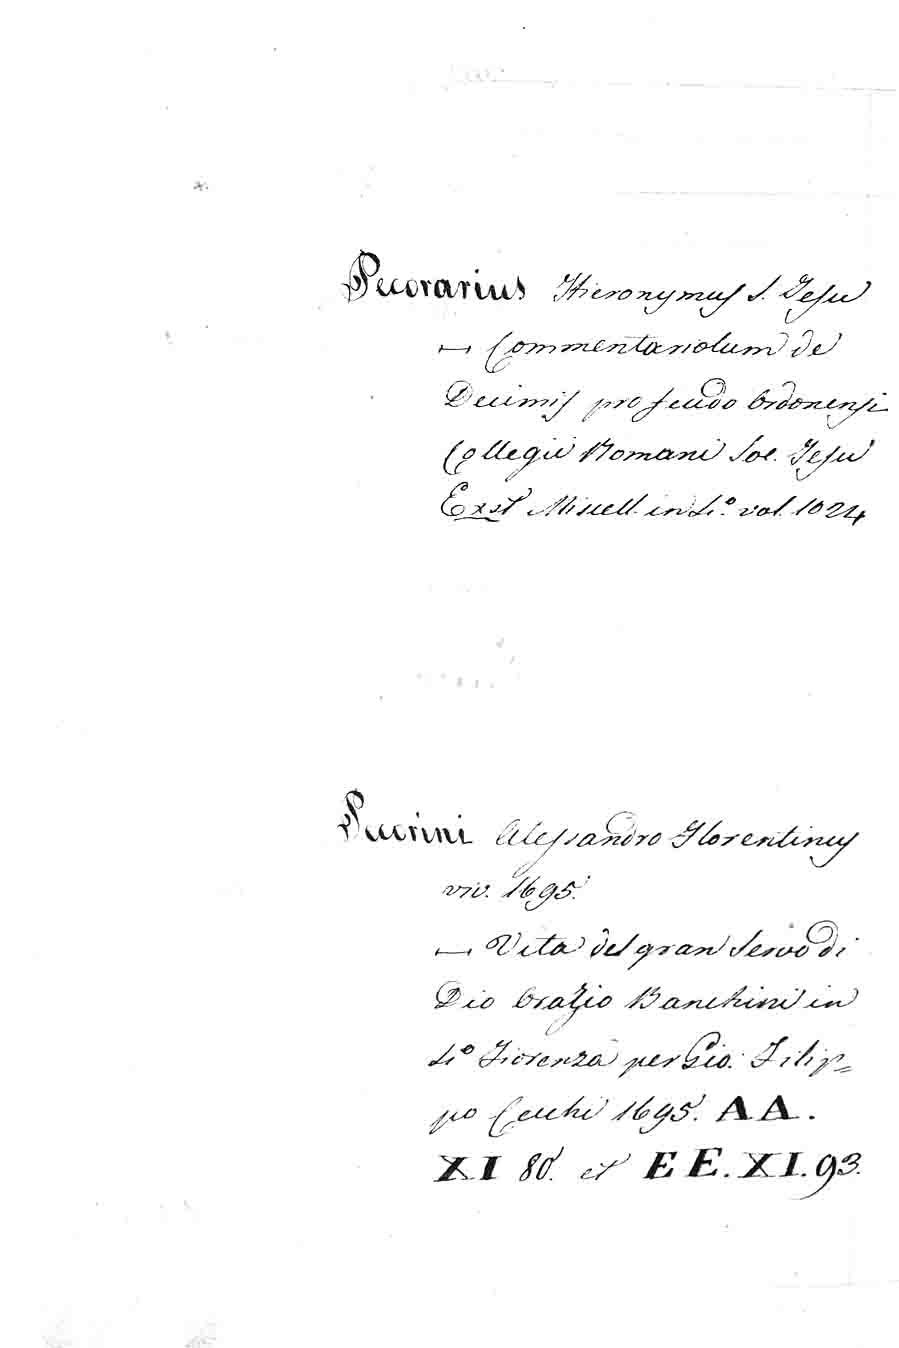 Pecorarius Hieronymus S. Jesu
— Commentariolum de
Decimis pro feudo Ordonensi
Collegii Romani Soc. Jesu
Exst Miscell. in 4.º vol. 1024
Pecorini Alessandro Florentinus
viv. 1695.
— Vita del gran Servo di
Dio Orazio Banchini in
4.º Fiorenza per Gio. Filip=
po Cecchi 1695. AA.
XI 80. et EE. XI. 93.